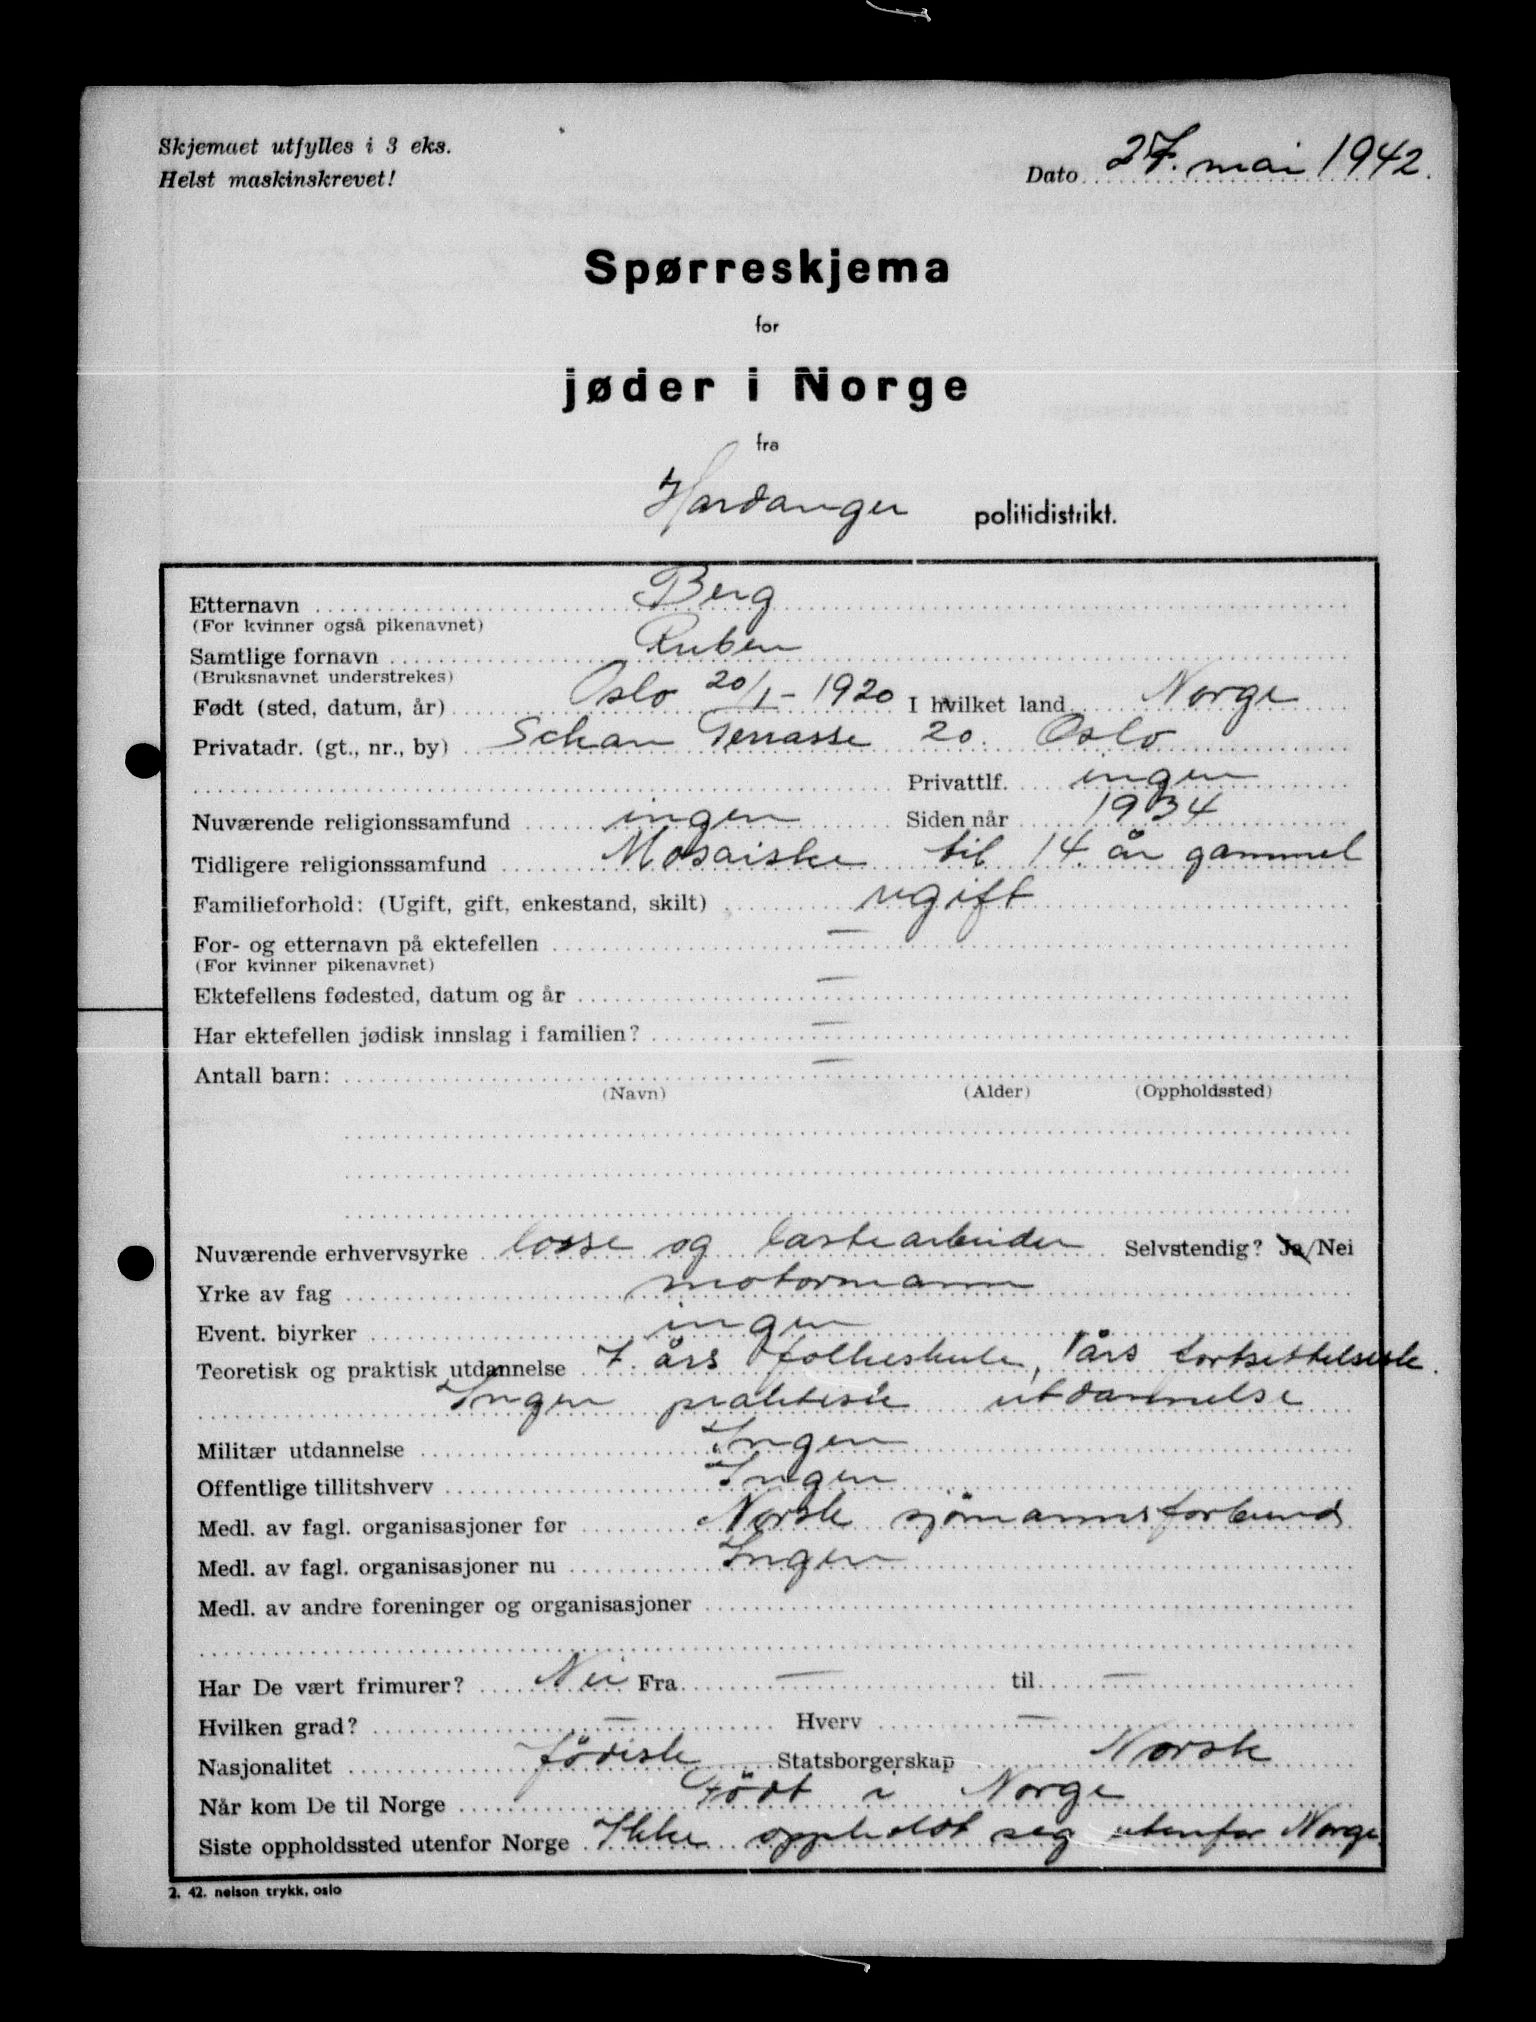 Skjemaet utfylles i 3 eks.
Helst maskinskrevet!
Dato 27. mai 1942.
Spørreskjema
for
jøder i Norge
fra
Hardanger politidistrikt.
Etternavn Berg
(For kvinner også pikenavnet)
Samtlige fornavn Ruben
(Bruksnavnet understrekes)
Født (sted, datum, år) Oslo 20/1 - 1920 I hvilket land Norge
Privatadr. (gt., nr., by) Schan Terrasse 20. Oslo
Privattlf. ingen
Nuværende religionssamfund ingen Siden når 1934
Tidligere religionssamfund Mosaiske til 14 år gammel
Familieforhold: (Ugift, gift, enkestand, skilt) ugift
For- og etternavn på ektefellen —
(For kvinner pikenavnet)
Ektefellens fødested, datum og år —
Har ektefellen jødisk innslag i familien? —
Antall barn: —
(Navn) (Alder) (Oppholdssted)
Nuværende erhvervsyrke losse og lastearbeider Selvstendig? Ja/Nei
Yrke av fag motormann
Event. biyrker ingen
Teoretisk og praktisk utdannelse 7. års folkeskule, 1 års fortsettelsessk.
Ingen praktisk utdannelse
Militær utdannelse Ingen
Offentlige tillitshverv Ingen
Medl. av fagl. organisasjoner før Norsk sjömannsforbund
Medl. av fagl. organisasjoner nu Ingen
Medl. av andre foreninger og organisasjoner
Har De vært frimurer? Nei Fra — til —
Hvilken grad? — Hverv —
Nasjonalitet Jödisk Statsborgerskap Norsk
Når kom De til Norge Födt i Norge
Siste oppholdssted utenfor Norge Ikke oppholdt seg utenfor Norge
2. 42. nelson trykk, oslo